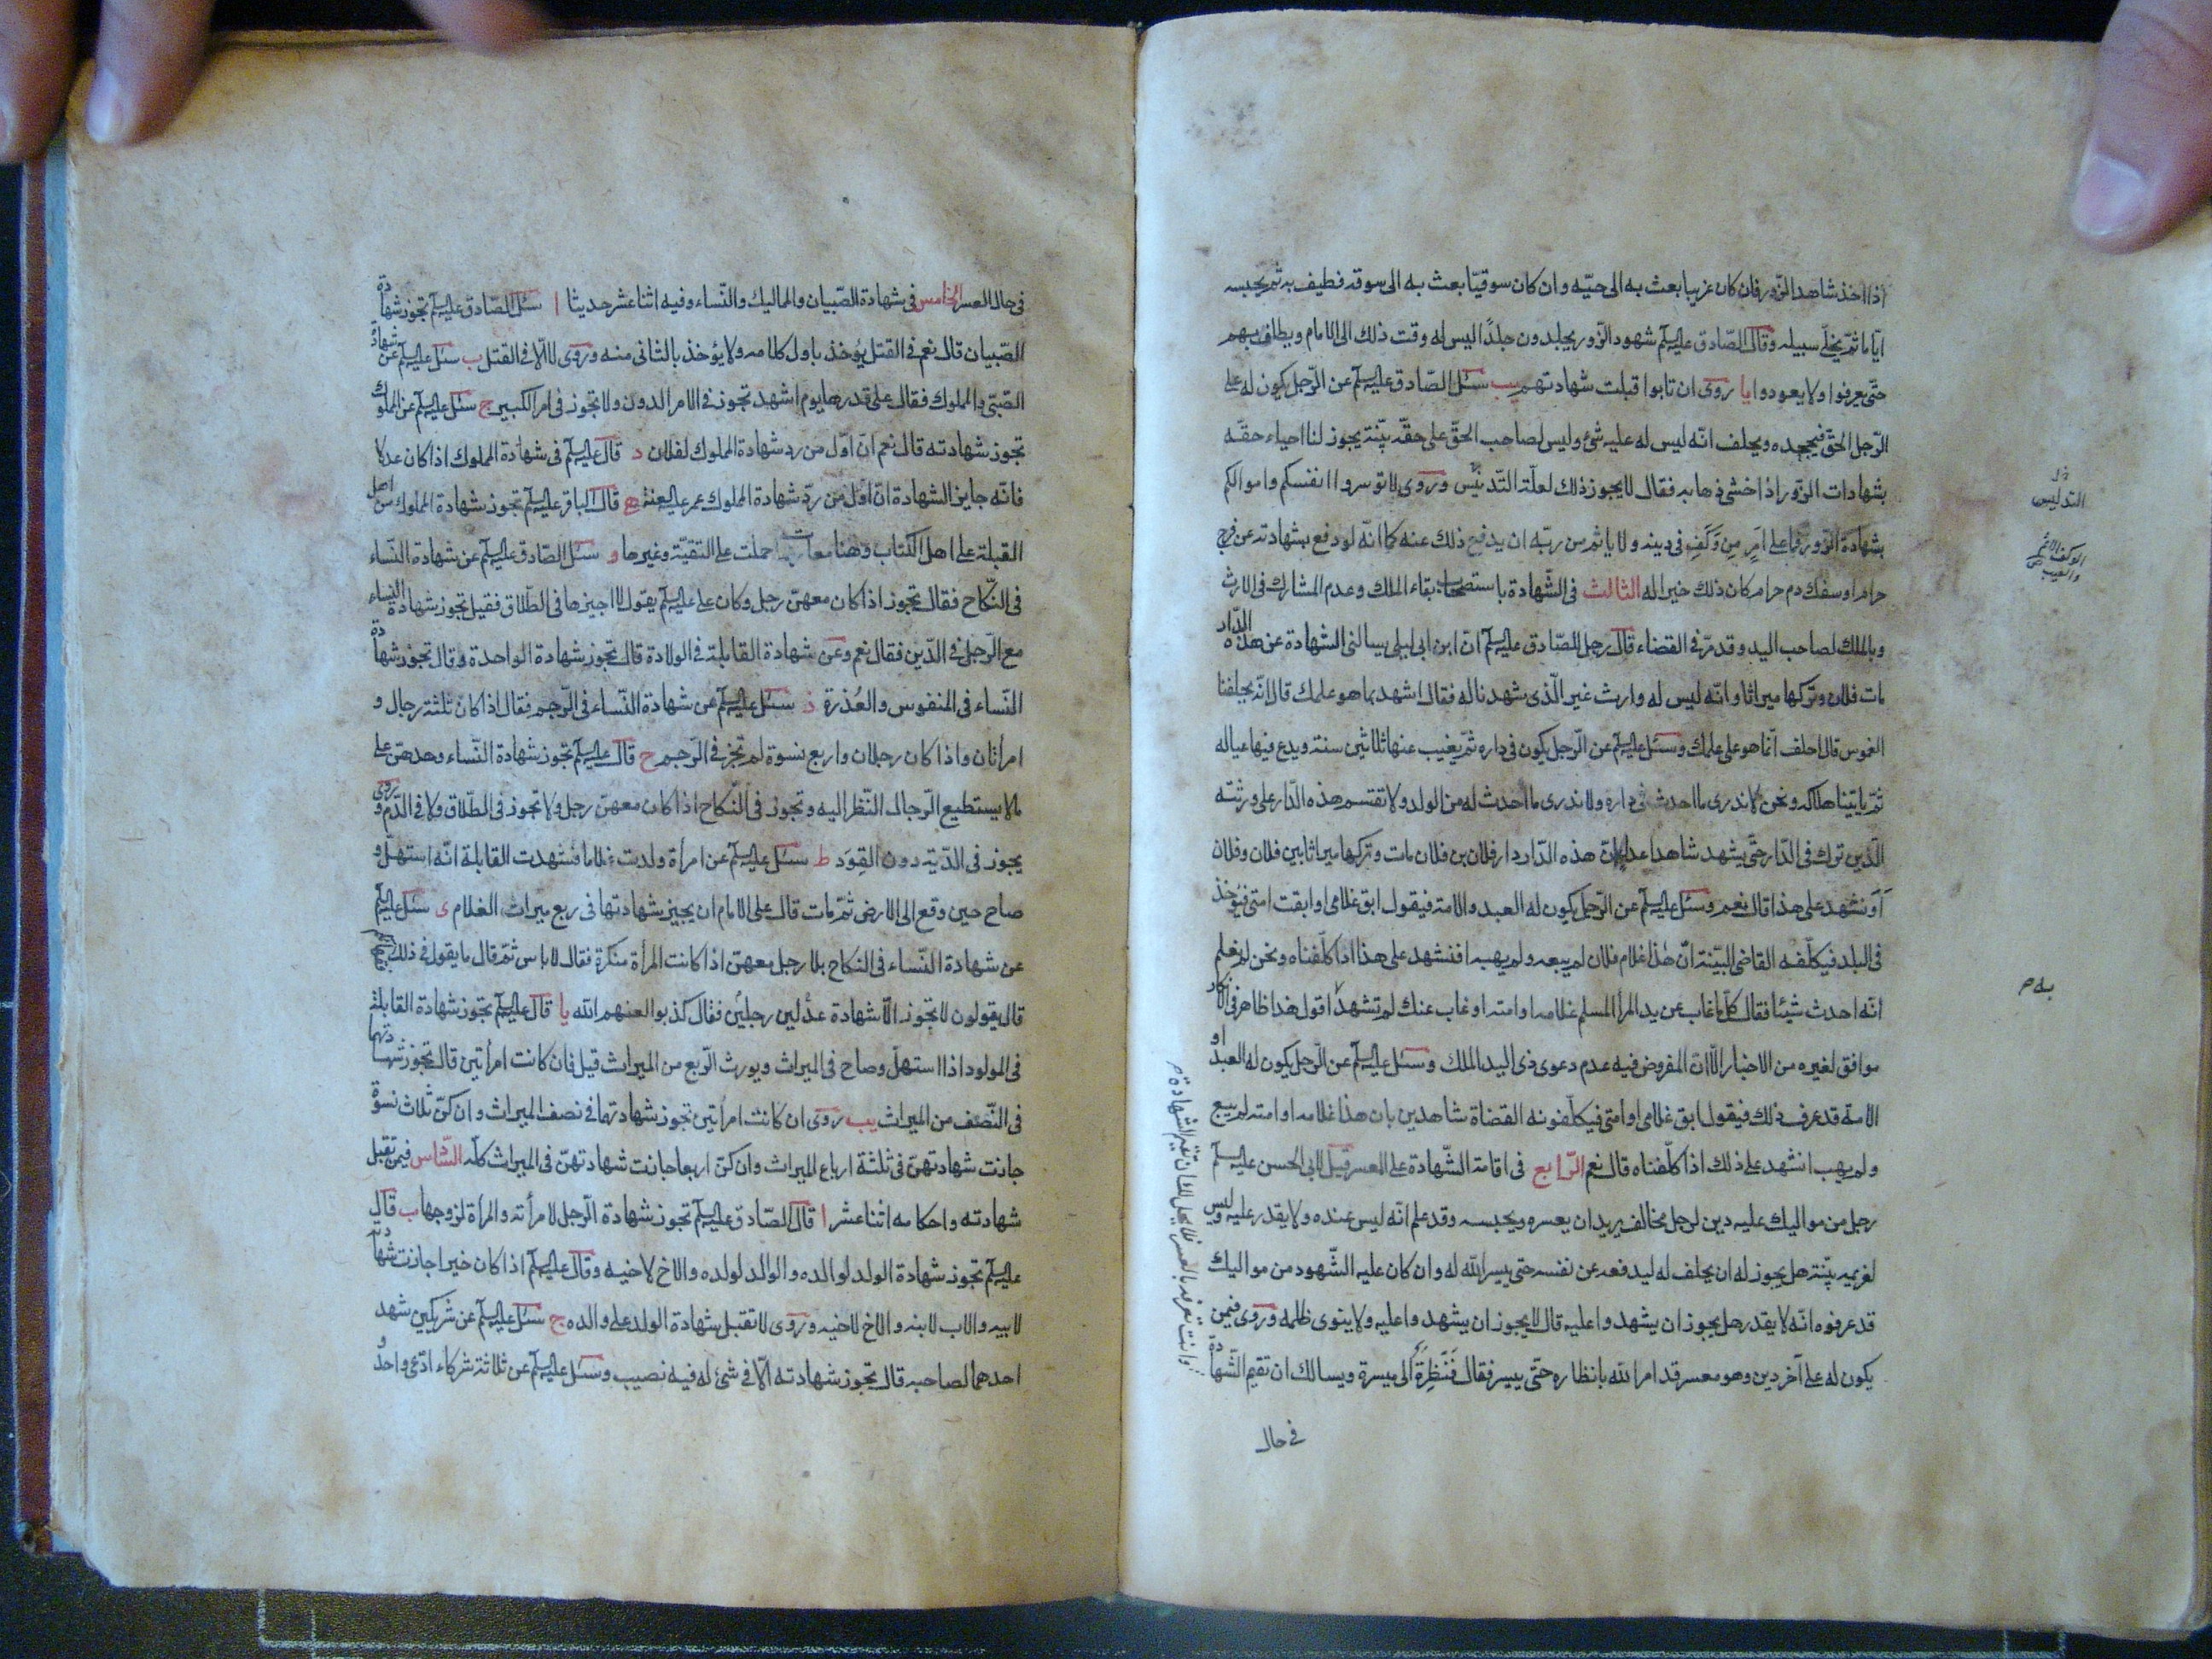 اذا اخذ شاهد الزّور فان كان غريبا بعث به الى حيّه وان كان سوقيّا بعث به الى سوقه فطيف به ثم يحبسه
ايّاما ثمّ يخلّى سبيله وقال الصّادق عليه السلم شهود الزّور يجلدون جلدًا ليس له وقت ذلك الى الامام ويطاف بهم
حتّى يعرفوا ولا يعودوا يا روى ان تابوا قبلت شهادتهم يب سئل الصّادق عليه السلم عن الرّجل يكون له على
الرّجل الحقّ فيجحده ويحلف انّه ليس له عليه شئ وليس لصاحب الحقّ على حقّه بيّنة يجوز لنا احياء حقّه
بشهادات الزّور اذا خشى ذهابه فقال لا يجوز ذلك لعلّة التّدنيس وروى لا توسروا انفسكم واموالكم
بشهادة الزّور فما على امرٍ مِن وَكَفٍ فى دينه ولا ياثم من ربّه ان يدفع ذلك عنه كما انّه لو دفع بشهادته عن فرج
حرام او سفك دم حرام كان ذلك خيرا له الثالث فى الشّهادة باستصحاب بقاء الملك وعدم المشارك فى الارث
وبالملك لصاحب اليد وقد مرّ فى القضاء قال رجل للصّادق عليه السلم انّ ابن ابى ليلى يسالنى الشهادة عن هذه الدّار
مات فلان وتركها ميراثا وانّه ليس له وارث غير الّذى شهدنا له فقال اشهد بما هو علمك قال انّه يحلفنا
الغموس قال احلف انّما هو على علمك وسئل عليه السلم عن الرّجل يكون فى داره ثمّ يغيب عنها ثلاثين سنة ويدع فيها عياله
ثمّ ياتينا هلاكه ونحن لا ندرى ما احدث فى داره ولا ندرى ما احدث له من الولد ولا تقتسم هذه الدّار على ورثته
الّذين ترك فى الدّار حتّى يشهد شاهدا عدل انّ هذه الدّار دار فلان بن فلان مات وتركها ميراثا بين فلان وفلان
اَوَنشهد على هذا قال نعم وسئل عليه السلم عن الرّجل يكون له العبد والامة فيقول ابق غلامى او ابقت امتى فيؤخذ
فى البلد فيكلّفه القاضى البيّنة انّ هذا غلام فلان لم يبعه ولم يهبه افنشهد على هذا اذا كلّفناه ونحن لم نعلم
انّه احدث شيئا فقال كلّما غاب عن يد المرأ المسلم غلامه او امته او غاب عنك لم تشهد اقول هذا ظاهر فى الانكار
موافق لغيره من الاخبار الّا انّ المفروض فيه عدم دعوى ذى اليد الملك وسئل عليه السلم عن الرّجل يكون له العبد او
الامة قد عرف ذلك فيقول ابق غلامى او امتى فيكلّفونه القضاة شاهدين بان هذا غلامه او امته لم يبع
ولم يهب انشهد على ذلك اذا كلّفناه قال نعم الرّابع فى اقامة الشّهادة على المعسر قيل لابى الحسن عليه السلم
رجل من مواليك عليه دين لرجل مخالف يريد ان يعسره ويحبسه وقد علم انّه ليس عنده ولا يقدر عليه وليس
لغريمه بيّنة هل يجوز له ان يحلف له ليدفعه عن نفسه حتى ييسر الله له وان كان عليه الشّهود من مواليك
قد عرفوه انّه لا يقدر هل يجوز ان يشهدوا عليه قال لا يجوز ان يشهدوا عليه ولا ينوى ظلمه وروى فيمن
يكون له على آخر دين وهو معسر قد امر الله بانظاره حتّى ييسر فقال فَنَظِرَة الى ميسرة ويسالك ان تقيم الشّهادة
فى حال
التدليس
الوكف الاثم والعيب
به م
وانت تعرفه بالعسر فلا يحلّ لك ان تقيم الشهادة م
فى حال العسر الخامس فى شهادة الصّبيان والمماليك والنّساء وفيه اثنا عشر حديثا ا سئل الصّادق عليه السلم تجوز شهادة
الصّبيان قال نعم فى القتل يؤخذ باول كلامه ولا يؤخذ بالثانى منه وروى لا الّا فى القتل ب سئل عليه السلم عن شهادة
الصّبىّ والمملوك فقال على قدرها يوم اشهد تجوز فى الامر الدون ولا تجوز فى امر الكبير ج سئل عليه السلم عن المملوك
تجوز شهادته قال نعم انّ اوّل من رد شهادة المملوك لفلان د قال عليه السلم فى شهادة المملوك اذا كان عدلا
فانّه جايز الشهادة انّ اوّل من ردّ شهادة المملوك عمر ه قال الباقر عليه السلم تجوز شهادة المملوك من اهل
القبلة على اهل الكتاب وهنا معارضات حملت على التقيّة وغيرها و سئل الصّادق عليه السلم عن شهادة النّساء
فى النّكاح فقال تجوز اذا كان معهنّ رجل وكان على عليه السلم يقول لا اجيزها فى الطّلاق فقيل تجوز شهادة النساء
مع الرّجل فى الدّين فقال نعم وعن شهادة القابلة فى الولادة قال تجوز شهادة الواحدة وقال تجوز شهادة
النّساء فى المنفوس والعُذرة ز سئل عليه السلم عن شهادة النّساء فى الرّجم فقال اذا كان ثلثة رجال و
امرأتان واذا كان رجلان واربع نسوة لم تجز فى الرّجم ح قال عليه السلم تجوز شهادة النّساء وحدهنّ على
ما لا يستطيع الرّجال النّظر اليه وتجوز فى النّكاح اذا كان معهنّ رجل ولا تجوز فى الطّلاق ولا فى الدّم وروى
يجوز فى الدّية دون القِوَد ط سئل عليه السلم عن امرأة ولدت غلاما فشهدت القابلة انّه استهلّ و
صاح حين وقع الى الارض ثمّ مات قال على الامام ان يجيز شهادتها فى ربع ميراث الغلام ى سئل عليه السلم
عن شهادة النّساء فى النكاح بلا رجل معهنّ اذا كانت المرأة منكرة فقال لا باس ثمّ قال ما يقول فى ذلك
قال يقولون لا تجوز الّا شهادة عدلين رجلين فقال كذبوا لعنهم الله يا قال عليه السلم تجوز شهادة القابلة
فى المولود اذا استهلّ وصاح فى الميراث ويورث الرّبع من الميراث قيل فان كانت امرأتين قال تجوز شهادتهما
فى النّصف من الميراث يب روى ان كانت امرأتين تجوز شهادتهما فى نصف الميراث وان كنّ ثلاث نسوة
جازت شهادتهنّ فى ثلثة ارباع الميراث وان كنّ اربعا جازت شهادتهنّ فى الميراث كلّه السّادس فيمن تقبل
شهادته واحكامه اثنا عشر ا قال الصّادق عليه السلم تجوز شهادة الرّجل لامرأته والمرأة لزوجها ب قال
عليه السلم تجوز شهادة الولد لوالده والوالد لولده والاخ لاخيه وقال عليه السلم اذا كان خيرا جازت شهادته
لابيه والاب لابنه والاخ لاخيه وروى لا تقبل شهادة الولد على والده ج سئل عليه السلم عن شريكين شهد
احدهما لصاحبه قال تجوز شهادته الّا فى شئ له فيه نصيب وسئل عليه السلم عن ثلاثة شركاء ادّعى واحد و